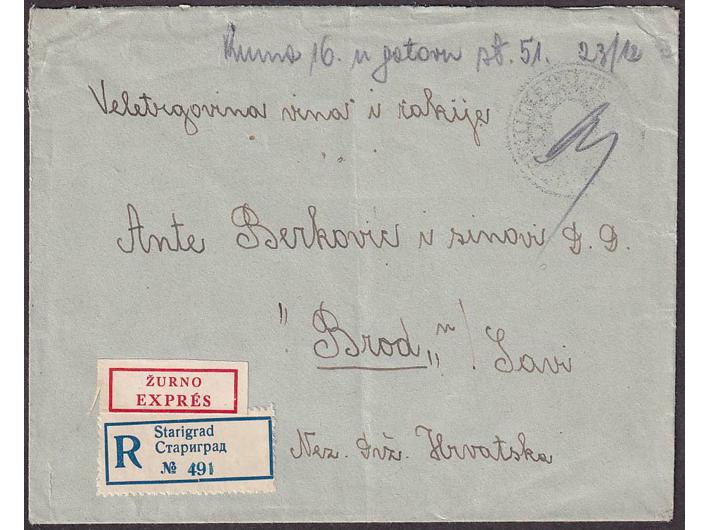 16. u gotovu 51. 23/12
Veletrgovina vina i rakije
Ante Berković i sinovi D. D.
"Brod„ n/ Savi
ŽURNO
EXPRÉS
R
Starigrad
Стариград
№ 491
Nez. Drž. Hrvatska